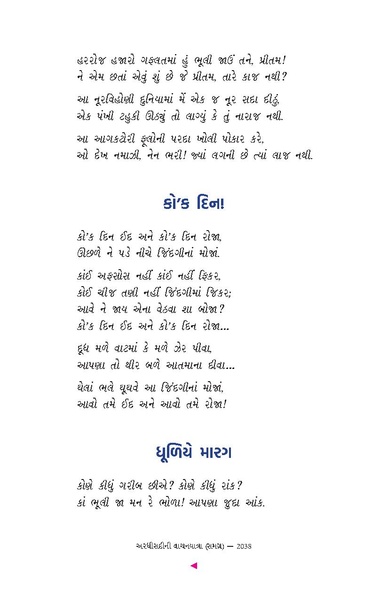 હરરોજ હજારો ગફલતમાં હું ભૂલી જાઉં તને, પ્રીતમ!
ને એમ છતાં એવું શું છે જે પ્રીતમ, તારે કાજ નથી?
આ નૂરવિહોણી દુનિયામાં મેં એક જ નૂર સદા દીઠું,
એક પંખી ટહુકી ઊઠ્યું તો લાગ્યું કે તું નારાજ નથી.
આ આગકટોરી ફૂલોની પરદા ખોલી પોકાર કરે,
ઓ દેખ નમાઝી, નેન ભરી! જ્યાં લગની છે ત્યાં લાજ નથી.
કો'ક દિના
કો'ક દિન ઈદ અને કો'ક દિન રોજા,
ઊછળે ને પડે નીચે જિંદગીનાં મોજાં.
કાંઈ અફસોસ નહીં કાંઈ નહીં ફિકર,
કોઈ ચીજ તણી નહીં જિંદગીમાં જિકર;
આવે ને જાય એના વેઠવા શા બોજા?
કો'ક દિન ઈદ અને કો'ક દિન રોજા...
દૂધ મળે વાટમાં કે મળે ઝેર પીવા,
આપણા તો થીર બળે આતમાના દીવા...
ઘેલાં ભલે ઘૂઘવે આ જિંદગીનાં મોજાં,
આવો તમે ઈદ અને આવો તમે રોજા!
ધૂળિયે મારગ
કોણે કીધું ગરીબ છીએ? કોણે કીધું રાંક?
કાં ભૂલી જા મન રે ભોળા! આપણા જુદા આંક.
અરધીસદીની વાચનયાત્રા (સમગ્ર) — 2035